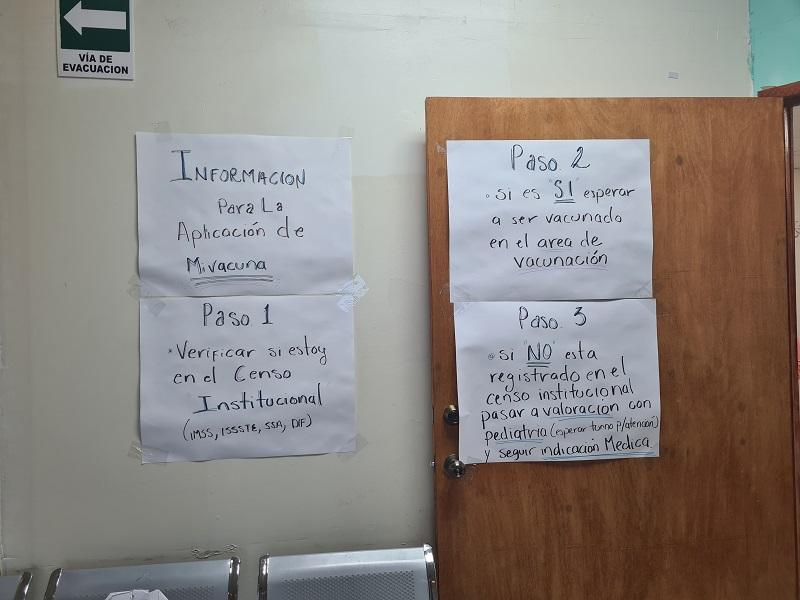 VÍA DE
EVACUACION
INFORMACION
Para La
Aplicación de
Mivacuna
Paso 1
• Verificar si estoy
en el Censo
Institucional
(IMSS, ISSSTE, SSA, DIF)
Paso. 2
• Si es "SI" esperar
a ser vacunado
en el area de
vacunación
Paso. 3
• Si "NO" esta
registrado en el
censo institucional
pasar a valoración con
pediatria (esperar turno p/atención)
y seguir indicación Medica.